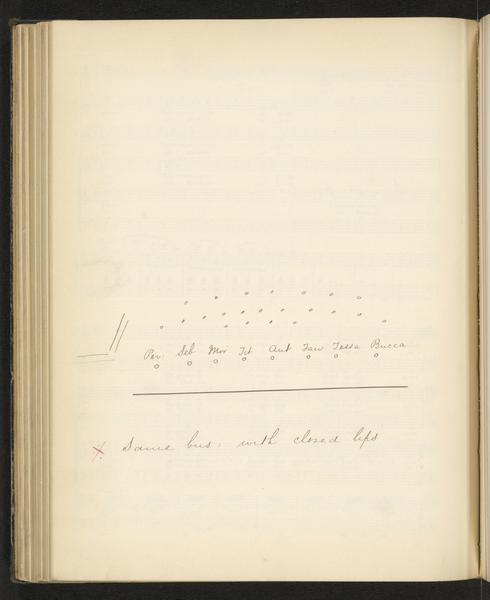 Per. Seb Mor Tit Ant Fan Tessa Bucca
Same bus: with closed lips